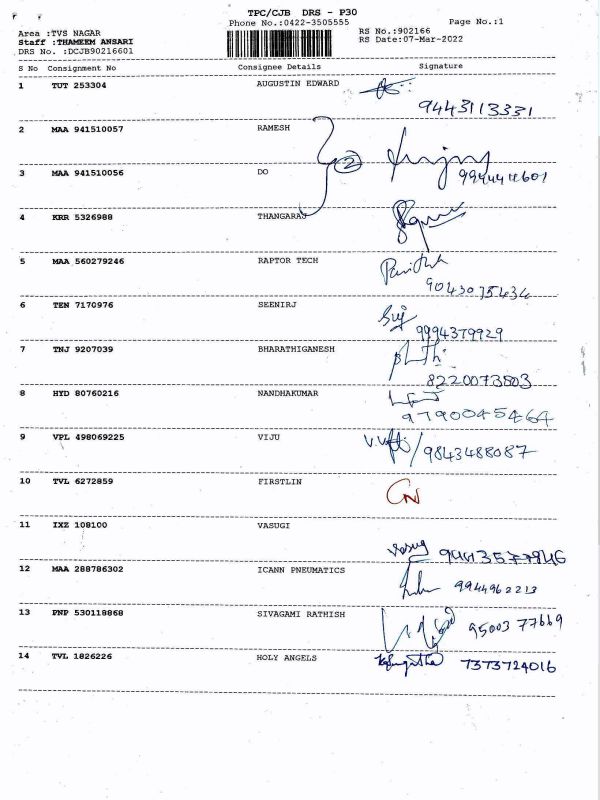 TPC/CJB DRS - P30
Phone No.:0422-3505555 Page No.:1
Area :TVS NAGAR RS No.:902166
Staff :THAMEEM ANSARI RS Date:07-Mar-2022
DRS No. :DCJB90216601
S No Consignment No Consignee Details Signature
1 TUT 253304 AUGUSTIN EDWARD
9443113331
2 MAA 941510057 RAMESH
2
3 MAA 941510056 DO
4 KRR 5326988 THANGARAJ
5 MAA 560279246 RAPTOR TECH
9043075434
6 TEN 7170976 SEENIRJ
9994379929
7 TNJ 9207039 BHARATHIGANESH
8220073503
8 HYD 80760216 NANDHAKUMAR
9790045464
9 VPL 498069225 VIJU
9843488087
10 TVL 6272859 FIRSTLIN
11 IXZ 108100 VASUGI
12 MAA 288786302 ICANN PNEUMATICS
9944962213
13 PNP 530118868 SIVAGAMI RATHISH
95003 77669
14 TVL 1826226 HOLY ANGELS
7373724016